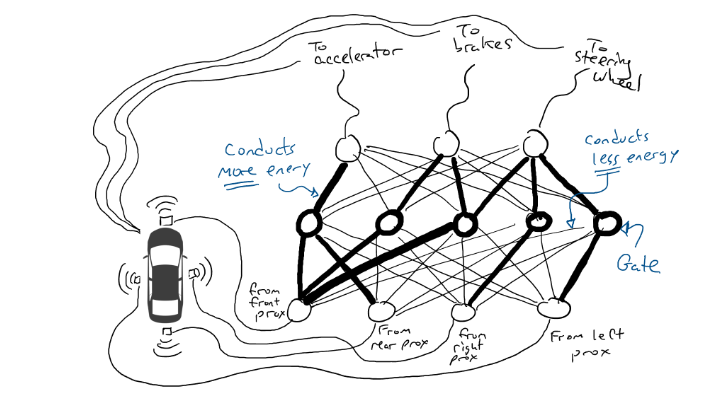 To
accelerator
To
brakes
To
steering
wheel
conducts
more enery
conducts
less energy
Gate
from
front
prox
From
rear prox
from
right
prox
From left
prox